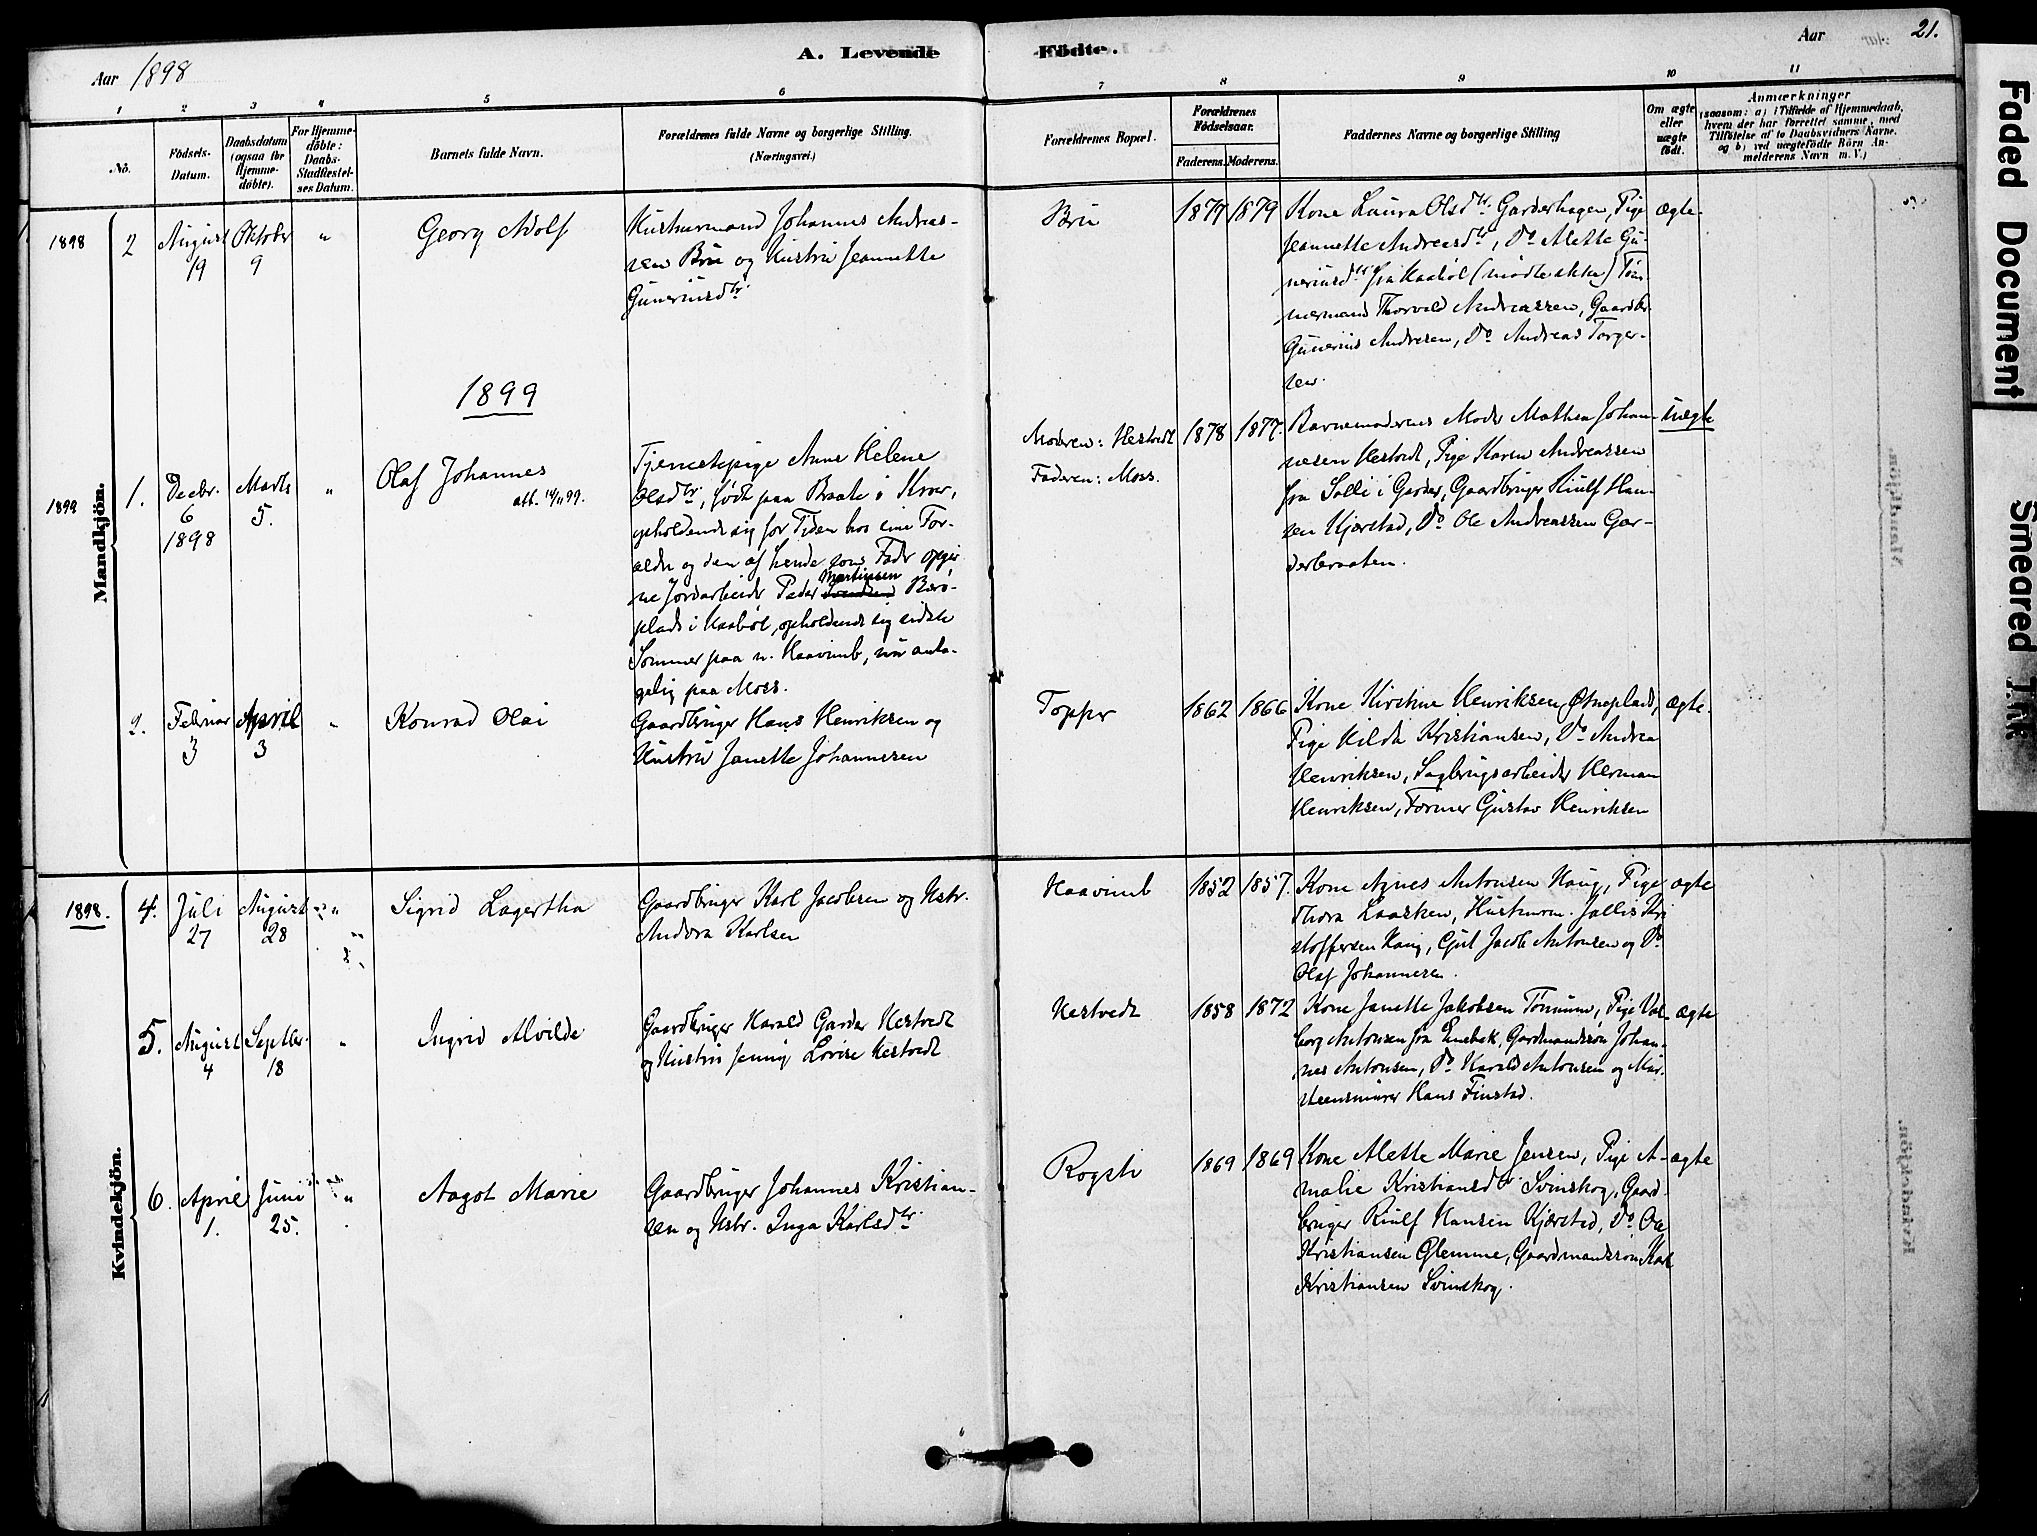 21.
Aar 1898
A. Levende
Födte.
Aar
1 2 3 4 5 6 7 8 9 10 11
No.
Födsels-Datum.
Daabsdatum (ogsaa for Hjemmedöbte).
For Hjemmedöbte: Daabs-Stadfæstelses Datum.
Barnets fulde Navn.
Forældrenes fulde Navne og borgerlige Stilling. (Næringsvei.)
Forældrenes Bopæl.
Forældrenes Födselsaar.
Faderens. Moderens.
Faddernes Navne og borgerlige Stilling
Om ægte eller uægte födt.
Anmærkninger
(saasom: a) i Tilfælde af Hjemmedaab, hvem der har forrettet samme, med Tilföielse af to Daabsvidners Navne. og b) ved uægtefödte Börn Anmelderens Navn m. V.)
Mandkjön.
1898
2
August 19
Oktober 9
"
Georg Adolf
Husmand Johannes Andreas-
sen Bru og Hustru Jeannette
Guneriusdtr
Bru
1877 1879
Kone Laura Olsdtr Garderhagen, Pige
Jeannette Andreasdtr, Do Alette Gu-
neriusdtr fra Haabøl (mødte ikke) Tøm-
mermand Thorvald Andreassen, Gaardbr
Gunerius Andresen, Do Andreas Torger-
sen.
ægte.
1899
1899
1.
Decbr. 6 1898
Marts 5.
"
Olaf Johannes
att. 14/11 99.
Tjenestepige Anne Helene
Olsdtr, født paa Braate i Kroer,
opholdende sig for Tiden hos sine For-
ældre og den af hende som Fader opgiv
ne Jordarbeider Peder Martinsen Berø-
plads i Haabøl, opholdende sig sidste
Sommer paa n. Haavimb, nu anta-
gelig paa Moss.
Moderen: Hestvedt
Faderen: Moss.
1878 1877.
Barnemoderens Moder Mathea Johan-
nesen Hestvedt, Pige Karen Andreassen
fra Solli i Garder, Gaardbruger Riulf Han-
sen Kjærstad, Do Ole Andreassen Gar-
derbraaten.
uægte
2.
Februar 3
April 3
"
Konrad Olai
Gaardbruger Hans Henriksen og
Hustru Janette Johannesen
Topper
1862 1866
Kone Kirstine Henriksen, Østneplads,
Pige Hilda Kristiansen, Do Andrea
Henriksen, Sagbrugsarbeider Herman
Henriksen, Former Gustav Henriksen
ægte.
Kvindekjön.
1898.
4.
Juli 27
August 28
"
Sigrid Lagertha
Gaardbruger Karl Jacobsen og Hstr.
Andora Karlsen
Haavimb
1852 1857.
Kone Agnes Antonsen Haug, Pige
Thora Laasken, Husmm. Jallis Kri
stoffersen Haug, Gjit Jacob Antonsen og Do
Olaf Johannesen.
ægte
5.
August 4
Septbr. 18
"
Ingrid Alvilde
Gaardbruger Harald Garder Hestvedt
og Hustru Jenny Lovise Hestvedt
Hestvedt
1858 1872
Kone Janette Jakobsen Tømmm, Pige Val-
borg Antonsen fra Enebak, Gardmandssøn Johan-
nes Antonsen, Do Harald Antonsen og Mur-
steensmurer Hans Finstad.
ægte
6.
April 1.
Juni 25.
"
Aagot Marie
Gaardbruger Johannes Kristian-
sen og Hstr. Inga Karlsdtr
Rogsti
1869 1869
Kone Alette Marie Jensen, Pige A-
malie Kristiansdtr Svinskog, Gaard-
bruger Riulf Hansen Kjærstad, Do Ole
Kristiansen Glemme, Gaardmandssøn Karl
Kristiansen Svinskog.
ægte
Faded Document
Smeared Ink